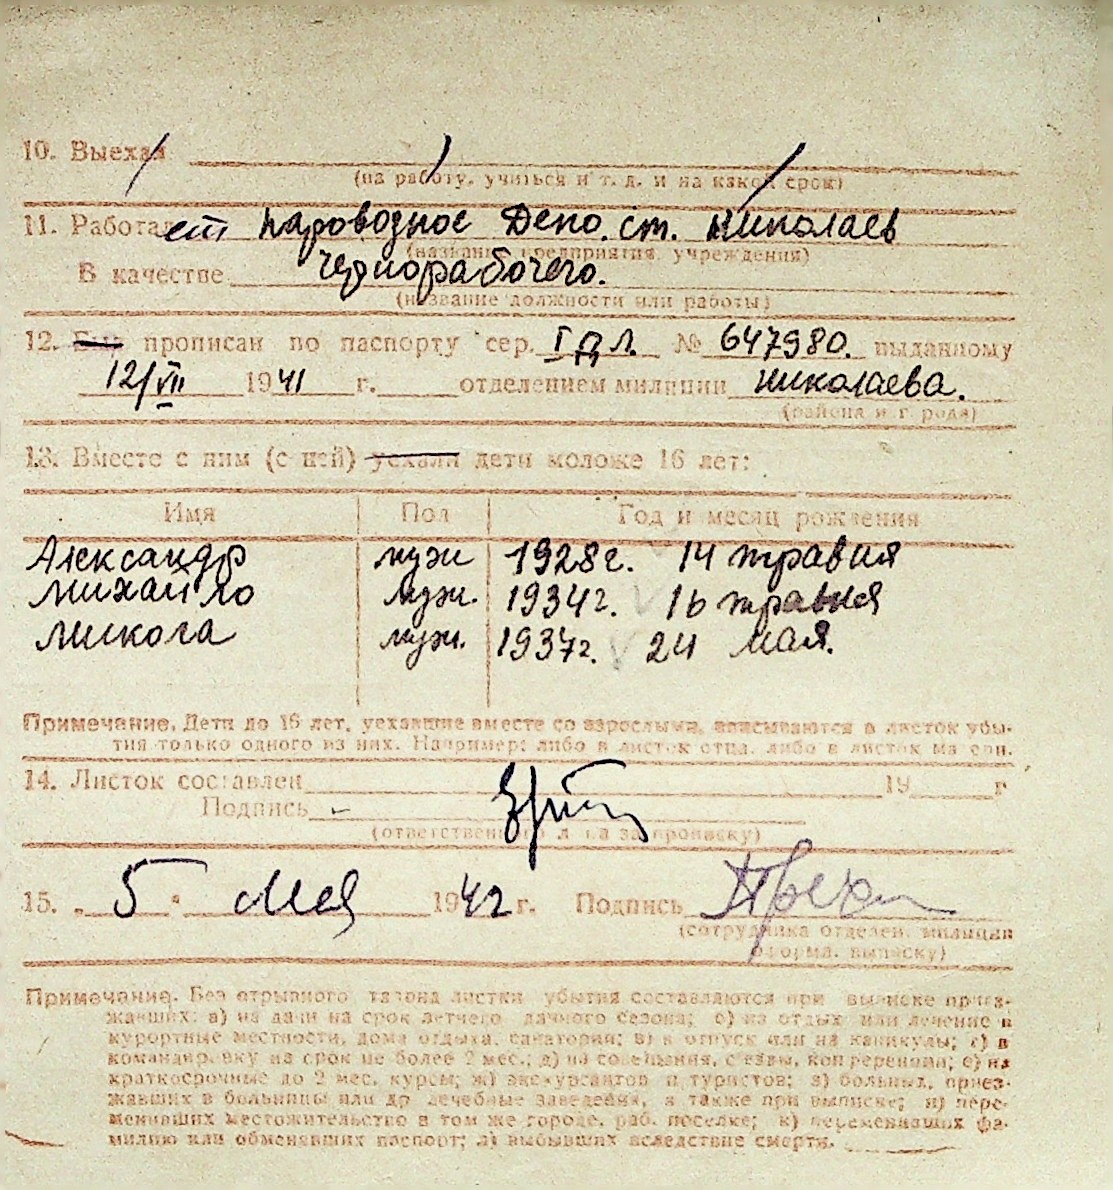 10. Выехал
(на работу, учиться и т. д. и на какой срок)
11. Работает Паровозное Депо. ст. Николаев
(название предприятия, учреждения)
В качестве Чернорабочего.
(название должности или работы)
12. Был прописан по паспорту сер. I ДЛ. № 647980. выданному
12/VII 1941 г. отделением милиции Николаева.
(района и города)
13. Вместе с ним (с ней) уехали дети моложе 16 лет:
Имя Пол Год и месяц рождения
Александр муж 1928г. 14 травня
Михайло муж. 1934г. 16 травня
Микола муж. 1937г. 24 мая.
Примечание. Дети до 16 лет, уехавшие вместе со взрослыми, вписываются в листок убы-
тия только одного из них. Например: либо в листок отца, либо в листок матери.
14. Листок составлен 19 г
Подпись
(ответственного лица за прописку)
15. „ 5 " Мая 1942 г. Подпись
(сотрудника отделен. милиции
оформл. выписку)
Примечание. Без отрывного талона листки убытия составляются при выписке приез-
жавших: а) на дачи на срок летнего дачного сезона; б) на отдых или лечение в
курортные местности, дома отдыха, санатории; в) в отпуск или на каникулы; г) в
командировку на срок не более 2 мес.; д) на совещания, съезды, конференции; е) на
краткосрочные до 2 мес. курсы; ж) экскурсантов и туристов; з) больных, приез-
жавших в больницы или др лечебные заведения, а также при выписке; и) пере-
менивших местожительство в том же городе, раб. поселке; к) переменивших фа-
милию или обменявших паспорт; л) выбывших вследствие смерти.